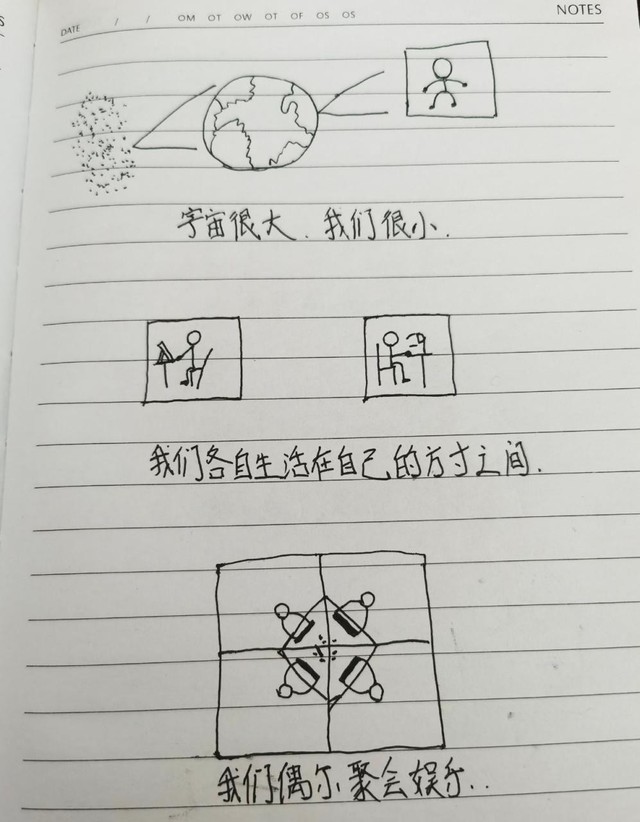 NOTES
DATE / / OM OT OW OT OF OS OS
宇宙很大、我们很小.
我们各自生活在自己的方寸之间.
我们偶尔聚会娱乐..